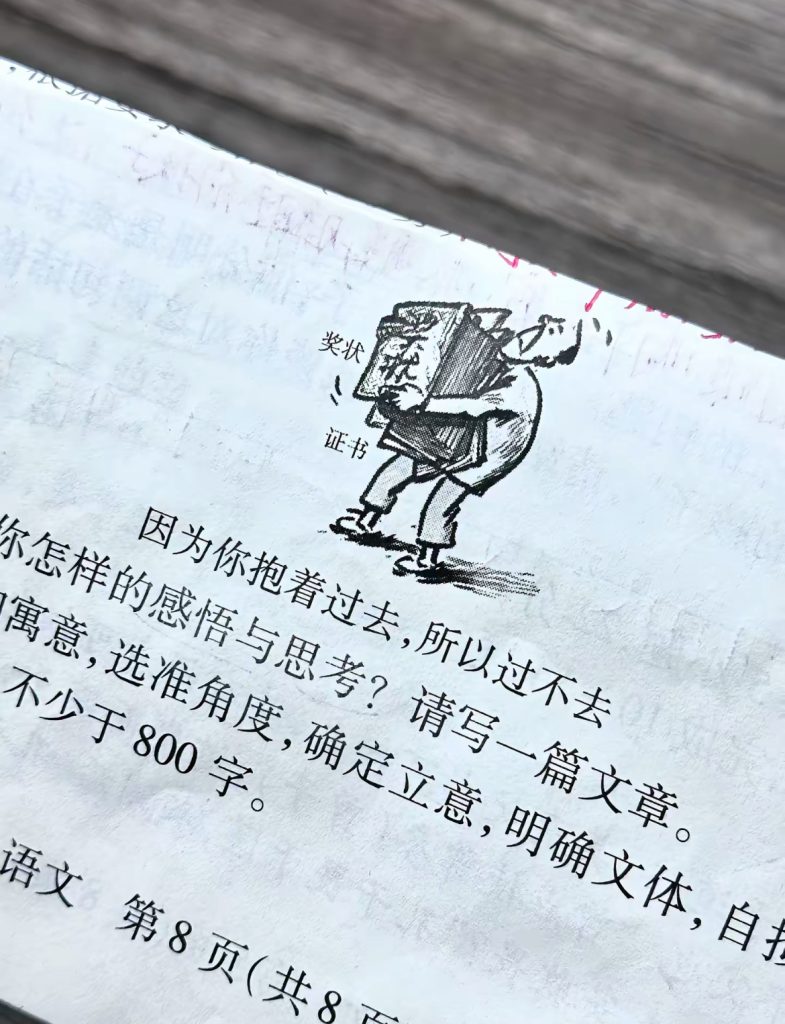 奖状
奖状
证书
因为你抱着过去,所以过不去
你怎样的感悟与思考?请写一篇文章。
寓意,选准角度,确定立意,明确文体,自拟
不少于800字。
语文 第8页(共8页